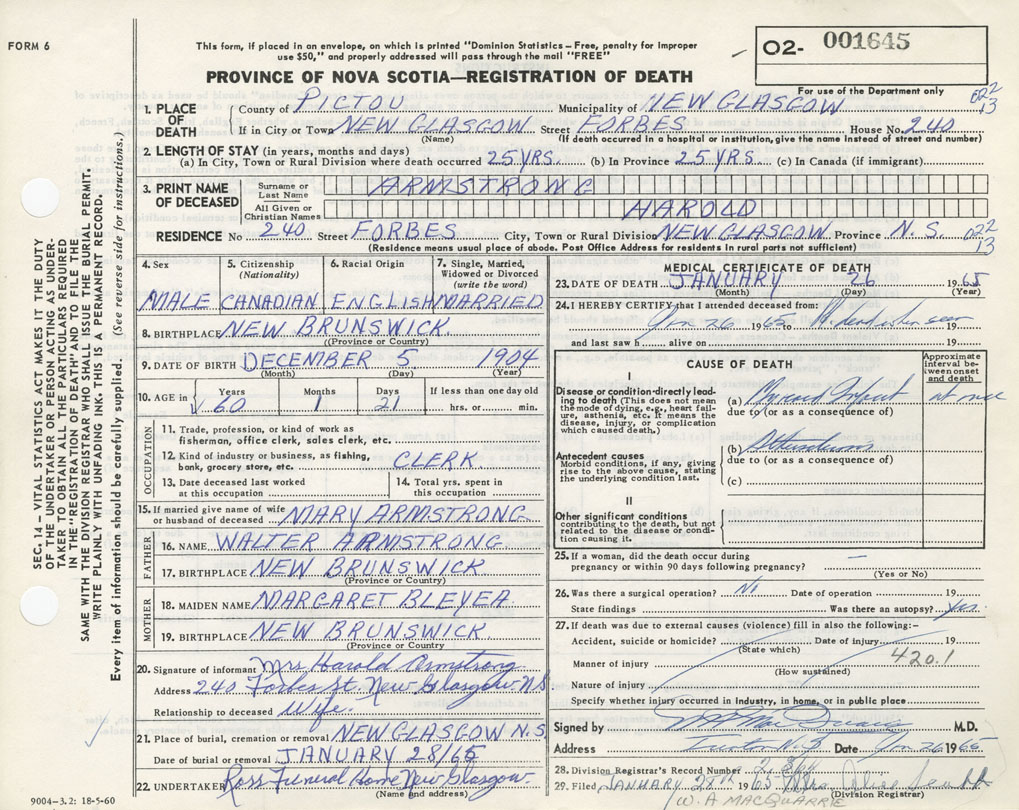 FORM 6
This form, if placed in an envelope, on which is printed "Dominion Statistics – Free, penalty for improper
use $50," and properly addressed will pass through the mail "FREE"
PROVINCE OF NOVA SCOTIA—REGISTRATION OF DEATH
O2- 001645
For use of the Department only
022
13
1. PLACE OF DEATH
County of PICTOU Municipality of NEW GLASGOW
If in City or Town NEW GLASGOW Street FORBES House No. 240
(Name) (If death occurred in a hospital or institution, give the name instead of street and number)
2. LENGTH OF STAY (in years, months and days)
(a) In City, Town or Rural Division where death occurred 25 YRS. (b) In Province 25 YRS. (c) In Canada (if immigrant)
3. PRINT NAME OF DECEASED
Surname or Last Name ARMSTRONG
All Given or Christian Names HAROLD
RESIDENCE No 240 Street FORBES City, Town or Rural Division NEW GLASGOW Province N.S. 022
13
(Residence means usual place of abode. Post Office Address for residents in rural parts not sufficient)
4. Sex 5. Citizenship (Nationality) 6. Racial Origin 7. Single, Married, Widowed or Divorced (write the word)
MALE CANADIAN ENGLISH MARRIED
8. BIRTHPLACE NEW BRUNSWICK
(Province or Country)
9. DATE OF BIRTH DECEMBER 5 1904
(Month) (Day) (Year)
10. AGE in Years Months Days If less than one day old
60 1 21 hrs. or min.
OCCUPATION
11. Trade, profession, or kind of work as
fisherman, office clerk, sales clerk, etc.
12. Kind of industry or business, as fishing,
bank, grocery store, etc. CLERK.
13. Date deceased last worked
at this occupation
14. Total yrs. spent in
this occupation
15. If married give name of wife
or husband of deceased MARY ARMSTRONG
FATHER
16. NAME WALTER ARMSTRONG
17. BIRTHPLACE NEW BRUNSWICK
(Province or Country)
MOTHER
18. MAIDEN NAME MARGARET BLEYEA
19. BIRTHPLACE NEW BRUNSWICK
(Province or Country)
20. Signature of informant Mrs Harold Armstrong
Address 240 Forbes St. New Glasgow. N.S
Relationship to deceased Wife.
21. Place of burial, cremation or removal NEW GLASGOW N.S.
Date of burial or removal JANUARY 28/65
22. UNDERTAKER Ross Funeral Home New Glasgow
(Name and address)
9004–3.2: 18-5-60
MEDICAL CERTIFICATE OF DEATH
23. DATE OF DEATH JANUARY 26 1965
(Month) (Day) (Year)
24. I HEREBY CERTIFY that I attended deceased from:
Jan 26 1965 to dead when seen 19
and last saw h alive on 19
CAUSE OF DEATH
Approximate interval between onset and death
I
Disease or condition directly leading to death (This does not mean the mode of dying, e.g., heart failure, asthenia, etc. It means the disease, injury, or complication which caused death.)
(a) Infarct at once
due to (or as a consequence of)
Antecedent causes
Morbid conditions, if any, giving rise to the above cause, stating the underlying condition last.
(b)
due to (or as a consequence of)
(c)
II
Other significant conditions
contributing to the death, but not related to the disease or condition causing it.
25. If a woman, did the death occur during
pregnancy or within 90 days following pregnancy? —
(Yes or No)
26. Was there a surgical operation? No Date of operation 19
State findings Was there an autopsy? Yes.
27. If death was due to external causes (violence) fill in also the following:–
Accident, suicide or homicide? Date of injury 19
(State which)
420.1
Manner of injury
(How sustained)
Nature of injury
Specify whether injury occurred in industry, in home, or in public place
Signed by M.D.
Address Date Jan 26 1965
28. Division Registrar's Record Number
29. Filed JANUARY 28th 1965 Mrs.
(Division Registrar)
(W. A MACQUARRIE
SEC. 14 – VITAL STATISTICS ACT MAKES IT THE DUTY
OF THE UNDERTAKER OR PERSON ACTING AS UNDER-
TAKER TO OBTAIN ALL THE PARTICULARS REQUIRED
IN THE "REGISTRATION OF DEATH" AND TO FILE THE
SAME WITH THE DIVISION REGISTRAR WHO SHALL ISSUE THE BURIAL PERMIT.
WRITE PLAINLY WITH UNFADING INK. THIS IS A PERMANENT RECORD.
Every item of information should be carefully supplied. (See reverse side for instructions.)